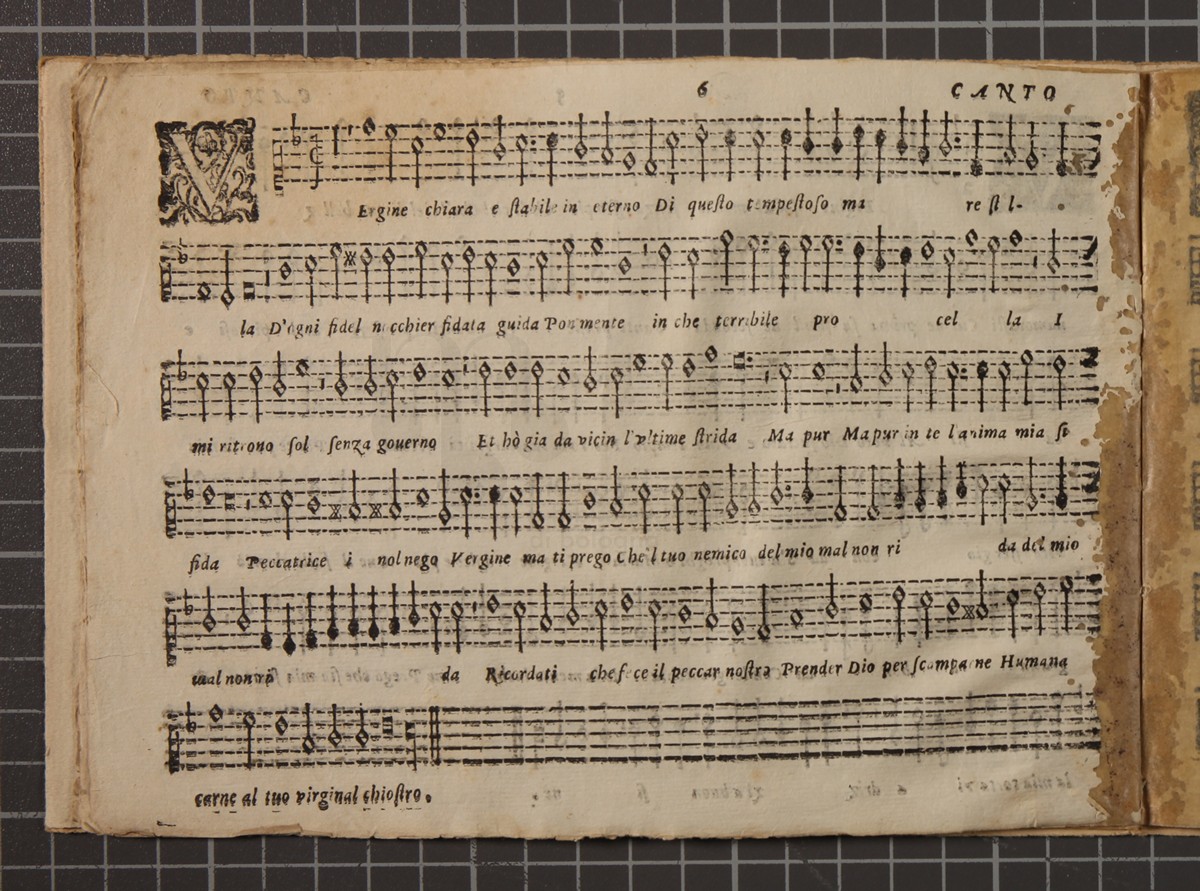 6 CANTO
VErgine chiara e ſtabile in eterno Di queſto tempeſtoſo ma re ſtl-
la D'ogni fidel nocchier fidata guida Pon mente in che terribile pro cel la I
mi ritrouo ſol ſenza gouerno Et hò gia da vicin l'vltime ſtrida Ma pur Ma pur in te l'anima mia ſi
fida Peccatrice i nol nego Vergine ma ti prego Che'l tuo nemico del mio mal non ri da del mio
mal non ri da Ricordati che fece il peccar noſtro Prender Dio per ſcamparne Humana
carne al tuo virginal chioſtro.